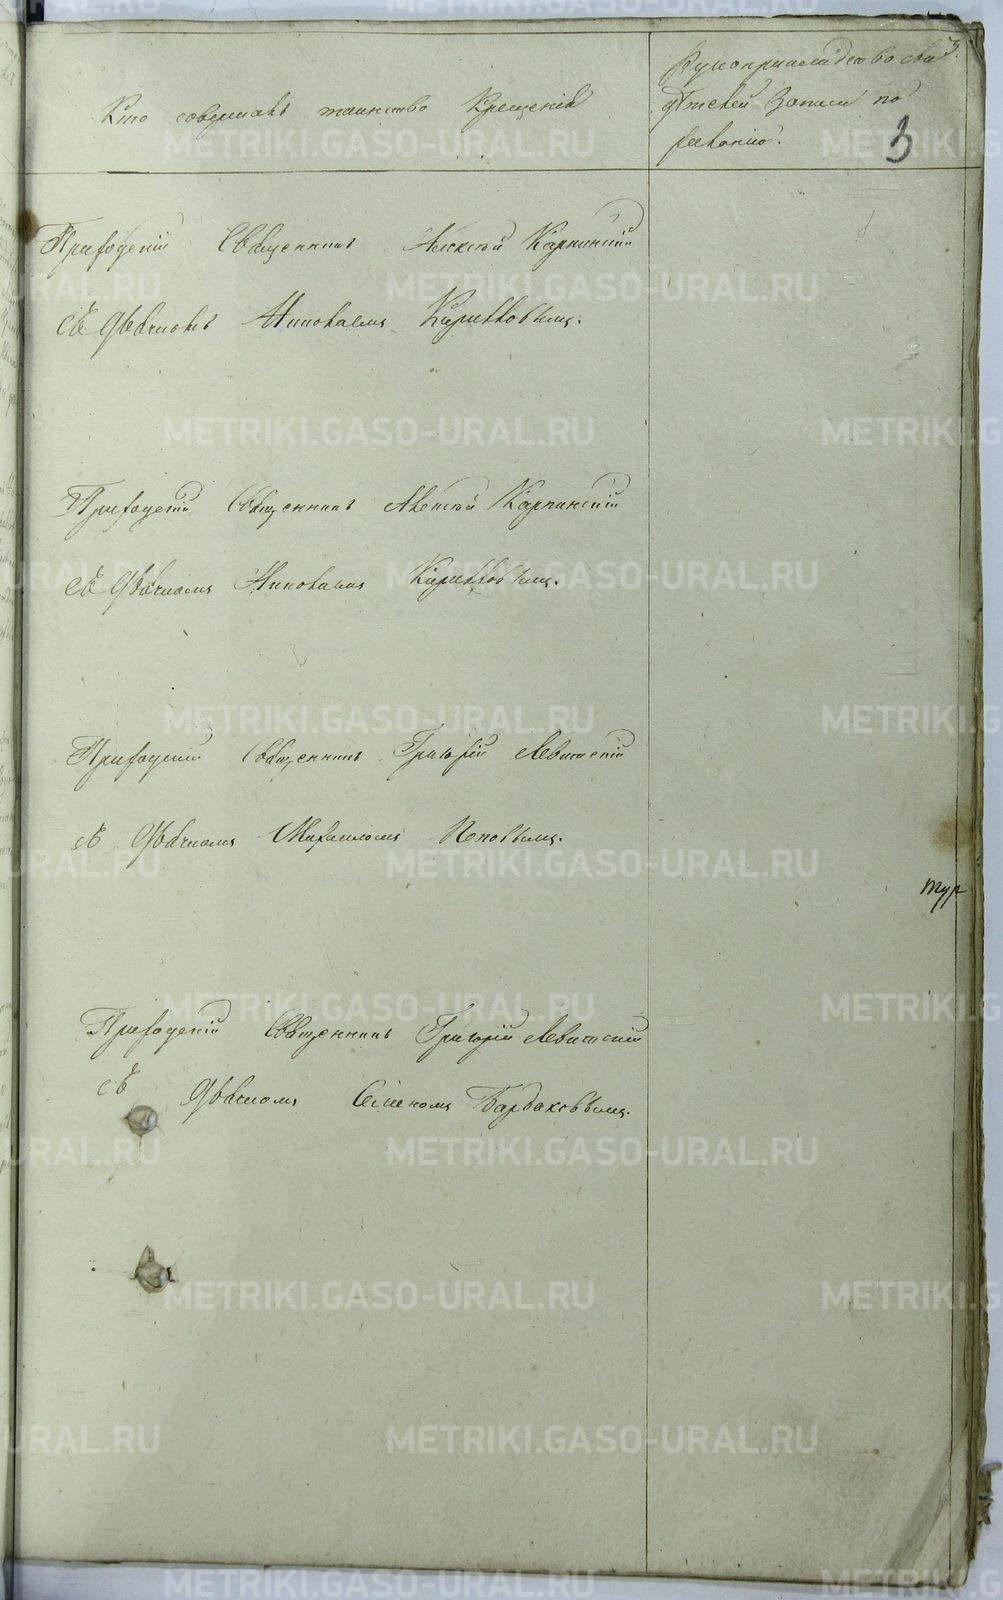 Кто совершалъ таинство Крещенія
Рукоприкладство сви
дѣтелей записи по
желанію.
3
Приходскій Священникъ Алексѣй Карпинскій
съ Дьячкомъ Кириловымъ.
Приходскій Священникъ Алексѣй Карпинскій
съ Дьячкомъ Кириловымъ.
Приходскій Священникъ Григорій Левитскій
съ Дьячкомъ Михаиломъ Поповымъ.
Приходскій Священникъ Григорій Левитскій
съ
Дьячкомъ Семеномъ Барбаковымъ.
METRIKI.GASO-URAL.RU